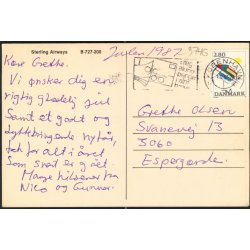 Sterling Airways B-727-200
Julen 1987
Kære Grethe.
Vi ønsker dig en
rigtig glædelig jul
Samt et godt og
lykkebringende nytår,
tak for alt i året
Som svait er gået.
Mange hilsener fra
Nico og Gunnar.
2.80
KØBENHAVN
DANMARK
Grethe Olsen
Svanevej 13
3060
Espergærde.